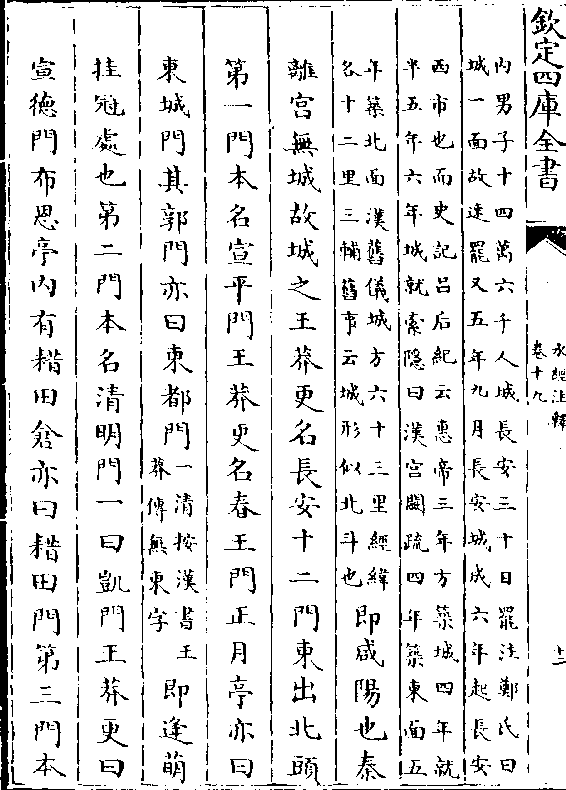 欽定四庫全書
水經注釋
卷十九
十二
內男子十四萬六千人城長安三十日罷注鄭氏曰
城一面故速罷又五年九月長安城成六年起長安
西市也而史記呂后紀云惠帝三年方築城四年就
半五年六年城就索隱曰漢宮闕疏四年築東面五
年築北面漢舊儀城方六十三里經緯
各十二里三輔舊事云城形似北斗也
即咸陽也秦
離宮無城故城之王莽更名長安十二門東出北頭
第一門本名宣平門王莽更名春王門正月亭亦曰
東城門其郭門亦曰東都門
一清按漢書王
莽傳無東字
即逢萌
挂冠處也第二門本名清明門一曰凱門王莽更曰
宣德門布恩亭內有耤田倉亦曰耤田門第三門本